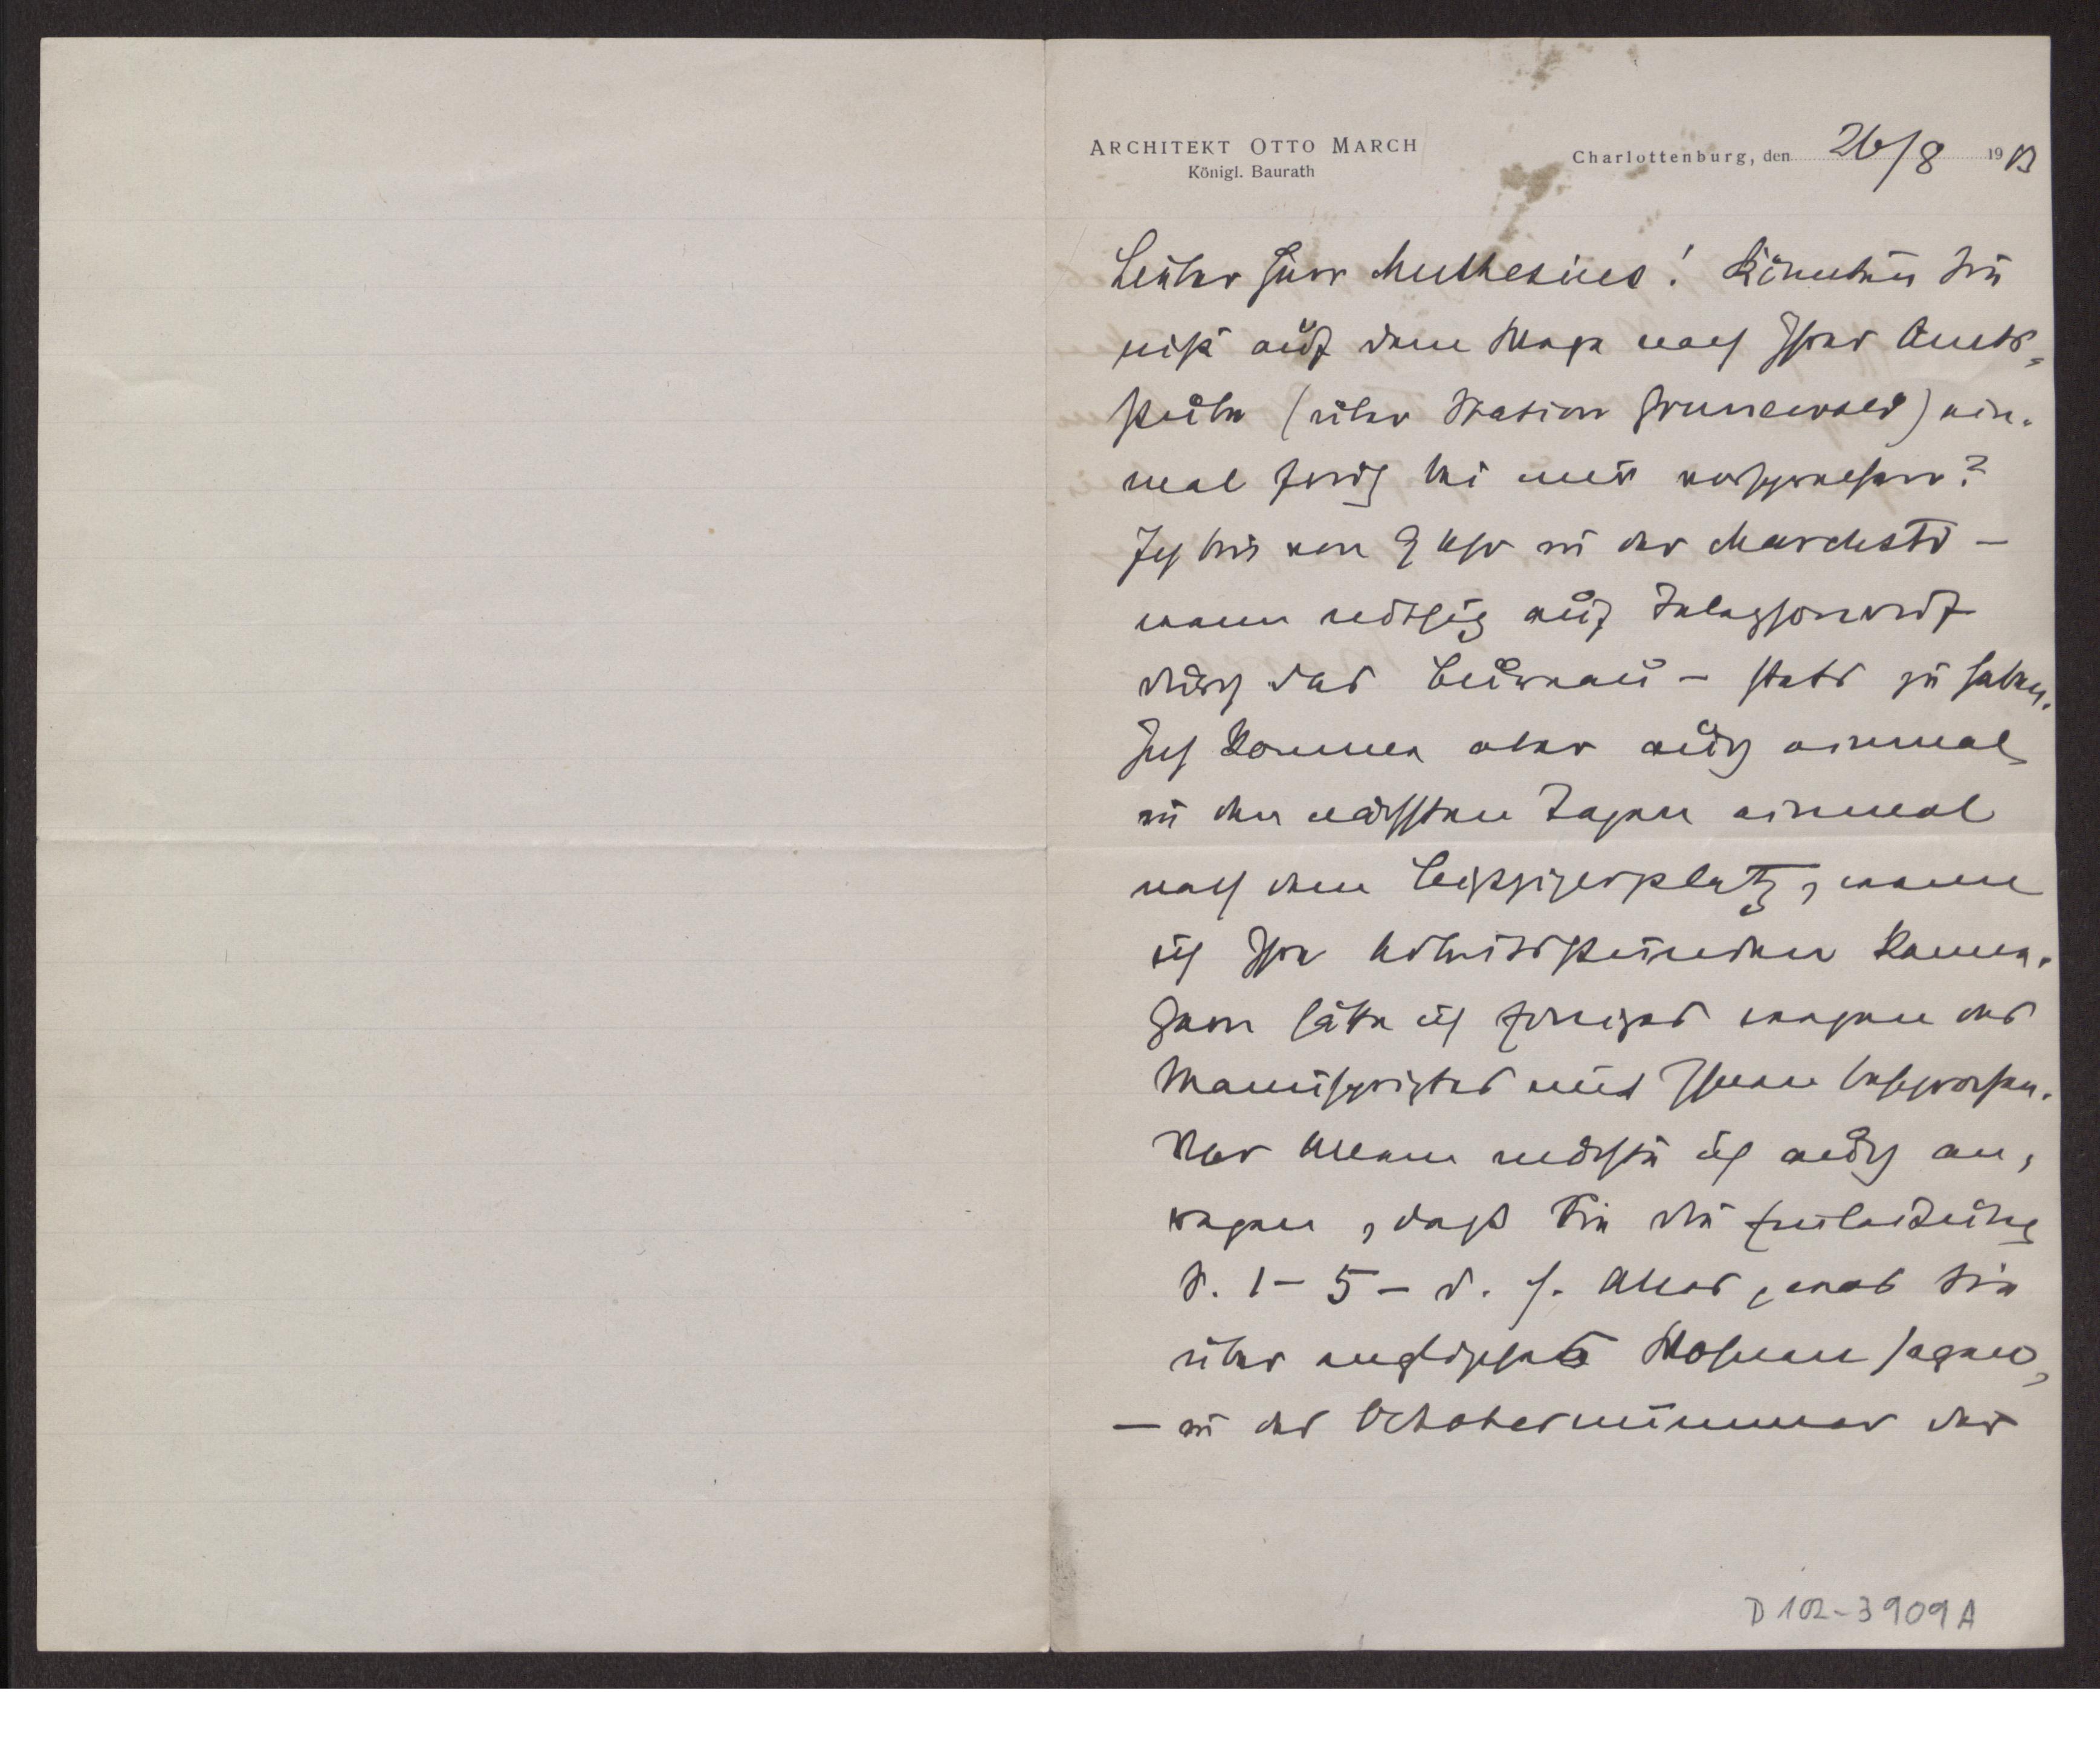 ARCHITEKT OTTO MARCH
Königl. Baurath
Charlottenburg, den 26/8 1903
Lieber Herr Muthesius! Könnten Sie
nicht auf dem Wege nach Ihrer Amts-
stube (über Station Grunewald) ein-
mal früh bei mir vorsprechen?
Ich bin von 9 Uhr in der Marchstr –
wenn nöthig auf Telephonruf
durch das Bureau – stets zu haben.
Ich komme aber auch einmal
in den nächsten Tagen einmal
nach dem Leipzigerplatz, wenn
ich Ihre Arbeitsstunden kenne.
Gern hätte ich einiges wegen des
Manuscriptes mit Ihnen besprochen.
Vor Allem möchte ich auch an-
regen, dass Sie die Einleitung
S. 1–5 – d. h. Alles, was Sie
über englisches Wohnen sagen,
– in der Octobernummer der
D 102-3909 A